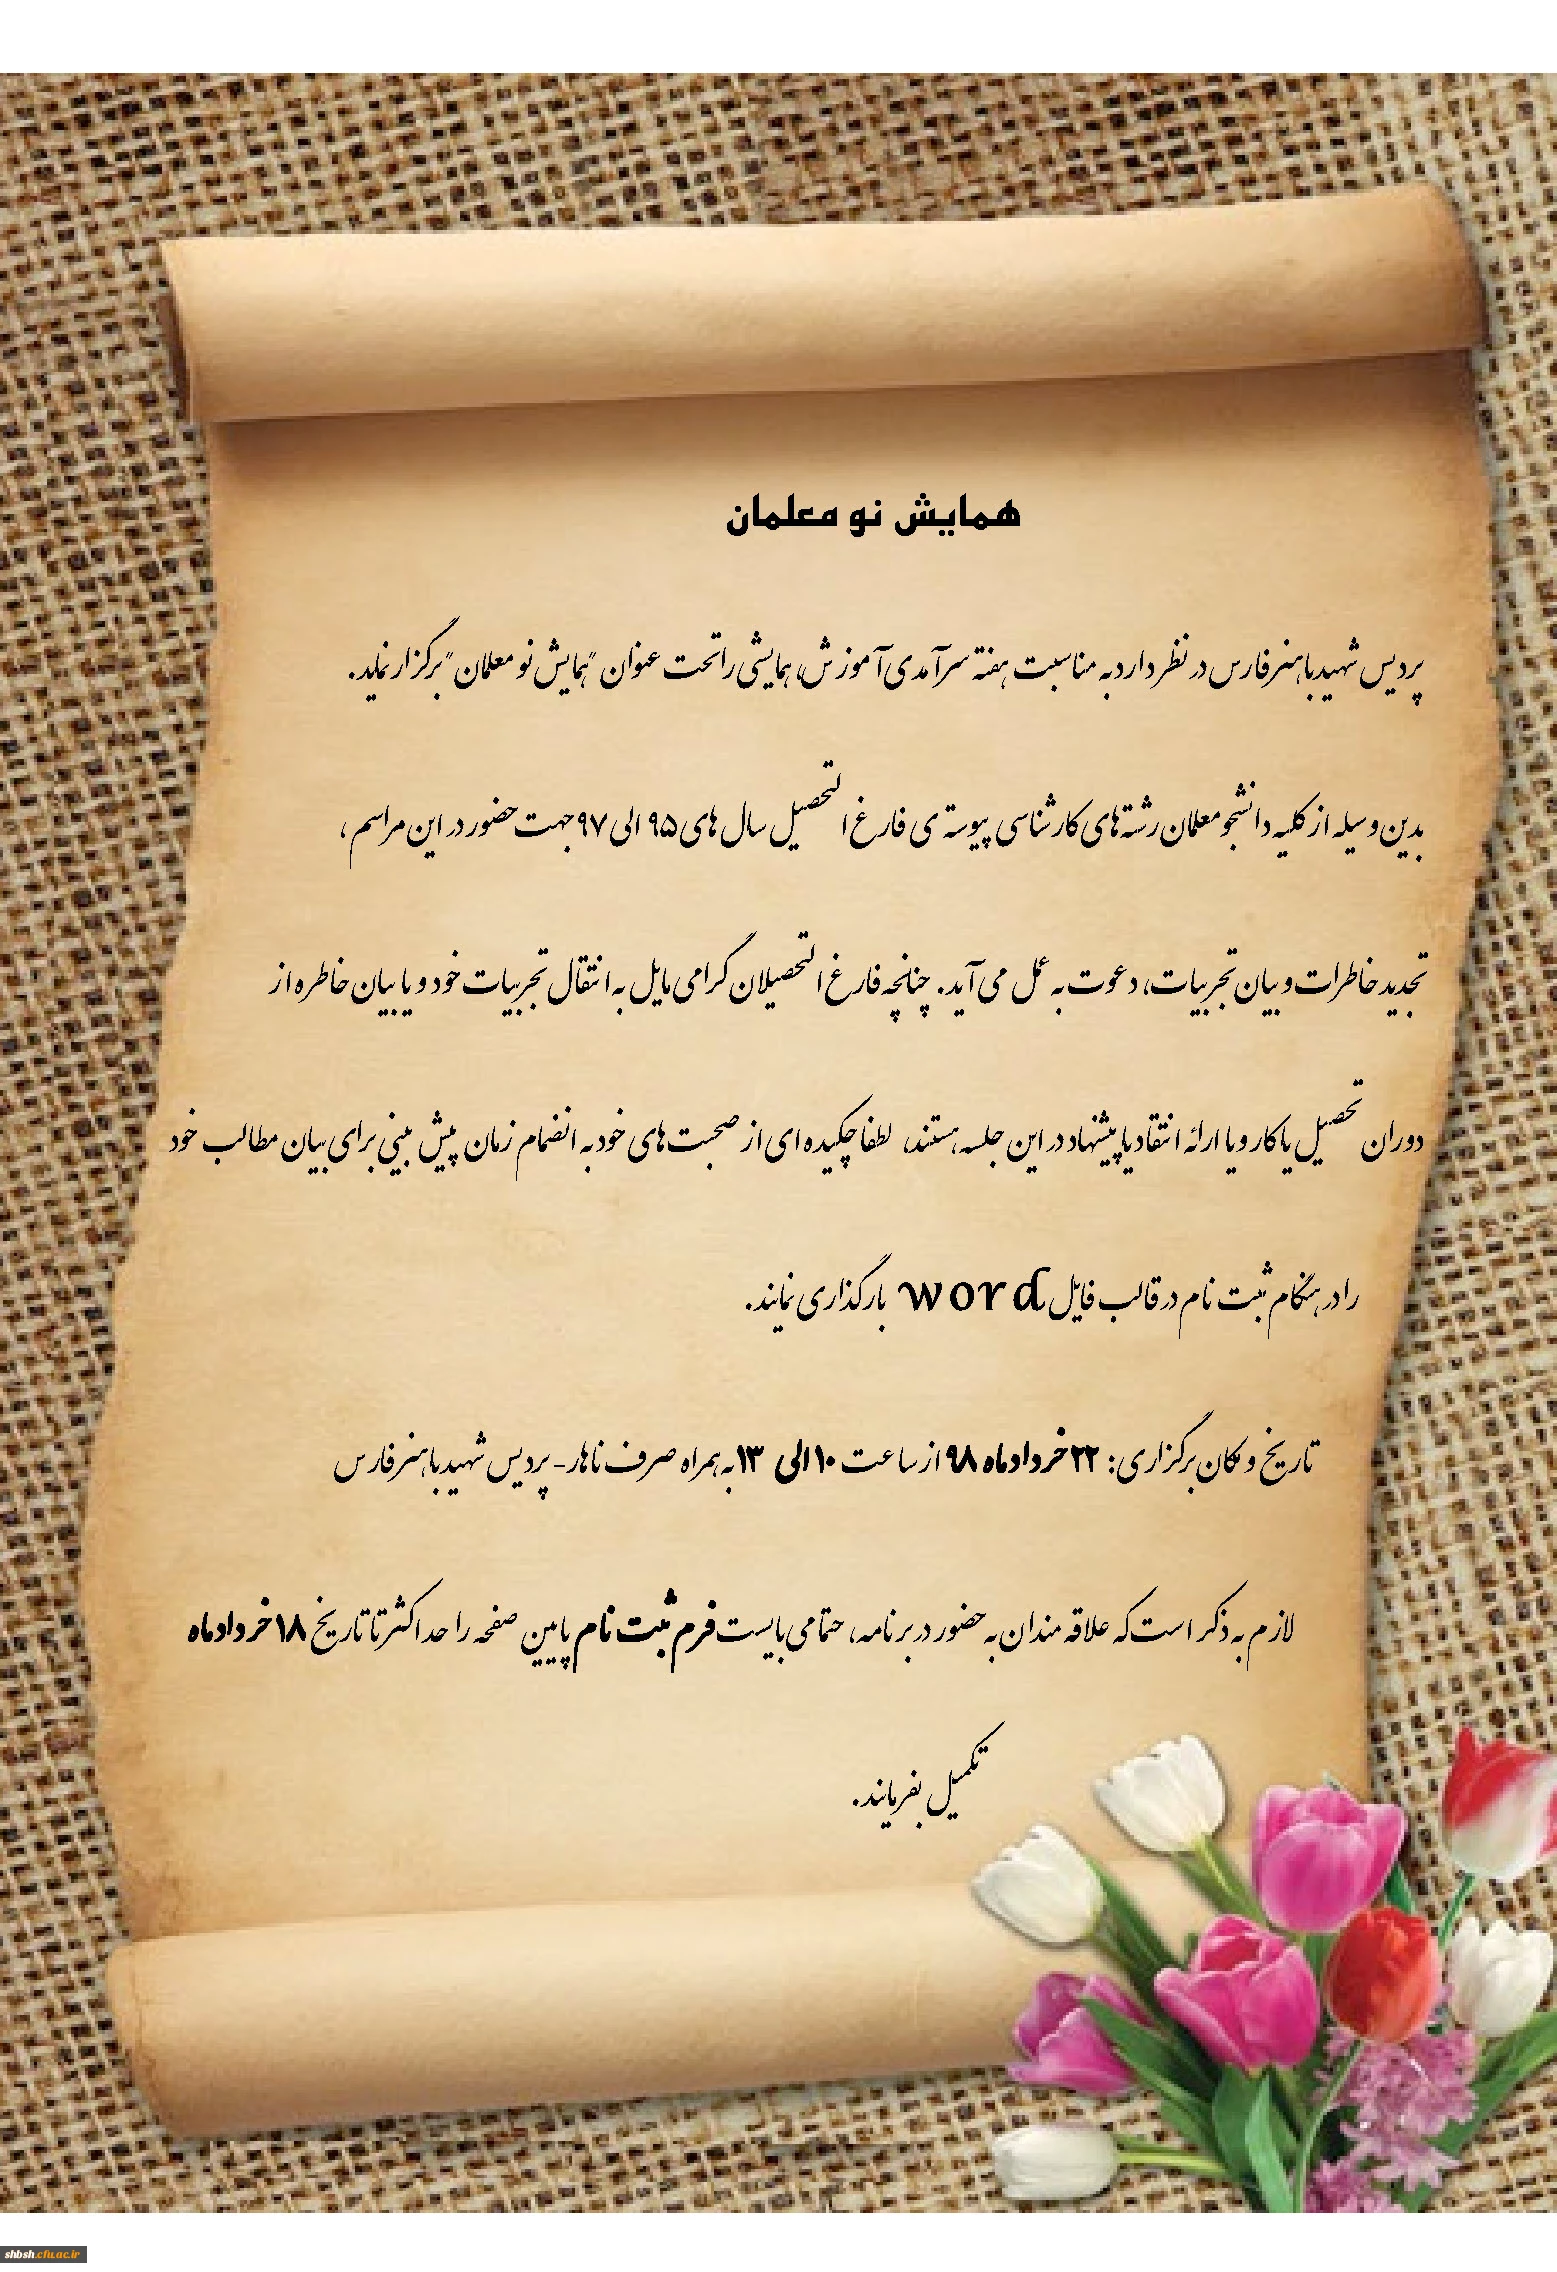 همایش نو معلمان
پردیس شهید باهنر فارس در نظر دارد به مناسبت هفته سرآمدی آموزش، همایشی را تحت عنوان "همایش نو معلمان" برگزار نماید.
بدین وسیله از کلیه دانشجو معلمان رشته های کارشناسی پیوسته ی فارغ التحصیل سال های ۹۵ الی ۹۷ جهت حضور در این مراسم ،
تجدید خاطرات و بیان تجربیات، دعوت به عمل می آید. چنانچه فارغ التحصیلان گرامی مایل به انتقال تجربیات خود و یا بیان خاطره از
دوران تحصیل یا کار و یا ارائه انتقاد یا پیشنهاد در این جلسه هستند، لطفا چکیده ای از صحبت های خود به انضمام زمان پیش بینی برای بیان مطالب خود
را در هنگام ثبت نام در قالب فایل word بارگذاری نمایند.
تاریخ و مکان برگزاری: ۲۲ خرداد ماه ۹۸ از ساعت ۱۰ الی ۱۳ به همراه صرف ناهار- پردیس شهید باهنر فارس
لازم به ذکر است که علاقه مندان به حضور در برنامه، حتما می بایست فرم ثبت نام پایین صفحه را حداکثر تا تاریخ ۱۸ خرداد ماه
تکمیل بفرمایند.
shbsh.cfu.ac.ir